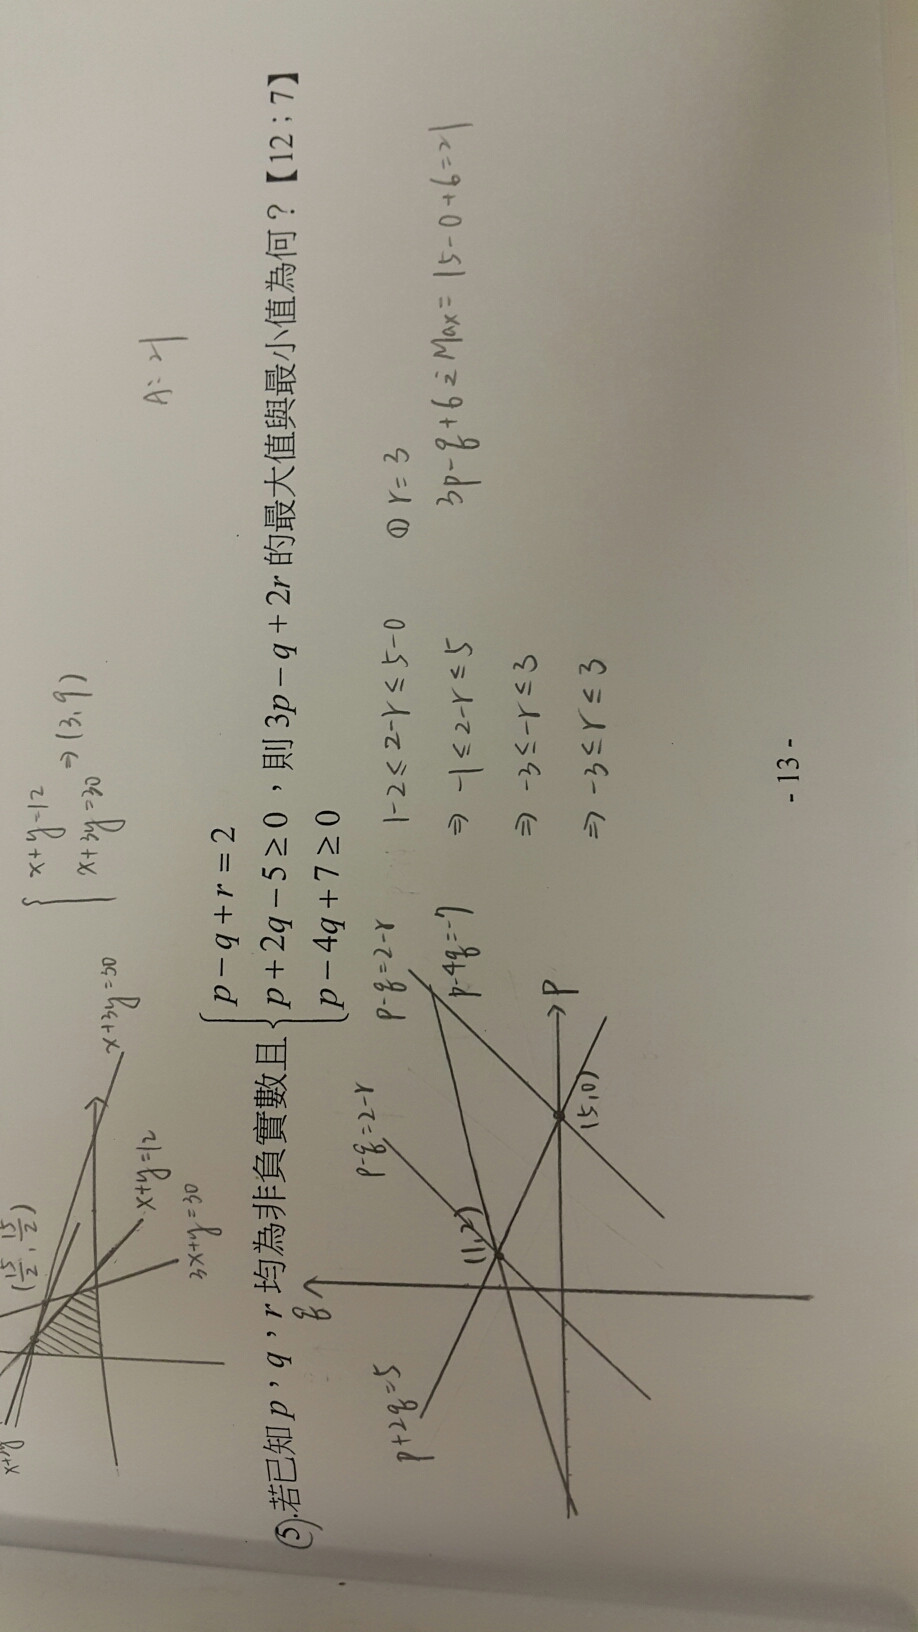 (15/2, 15/2)
x+y
x+3y=30
x+y=12
3x+y=30
{ x+y=12
x+3y=30 ⇒ (3,9)
A: 21
⑤.若已知 p，q，r 均為非負實數且 { p − q + r = 2
p + 2q − 5 ≥ 0，則 3p − q + 2r 的最大值與最小值為何？【12；7】
p − 4q + 7 ≥ 0
q
p-q=2-r
p-q=2-r
p+2q=5
p-4q=-7
(1,2)
(5,0)
P
1-2≤2-r≤5-0
⇒ -1≤2-r≤5
⇒ -3≤-r≤3
⇒ -3≤r≤3
① r=3
3p-q+6=Max=15-0+6=21
- 13 -